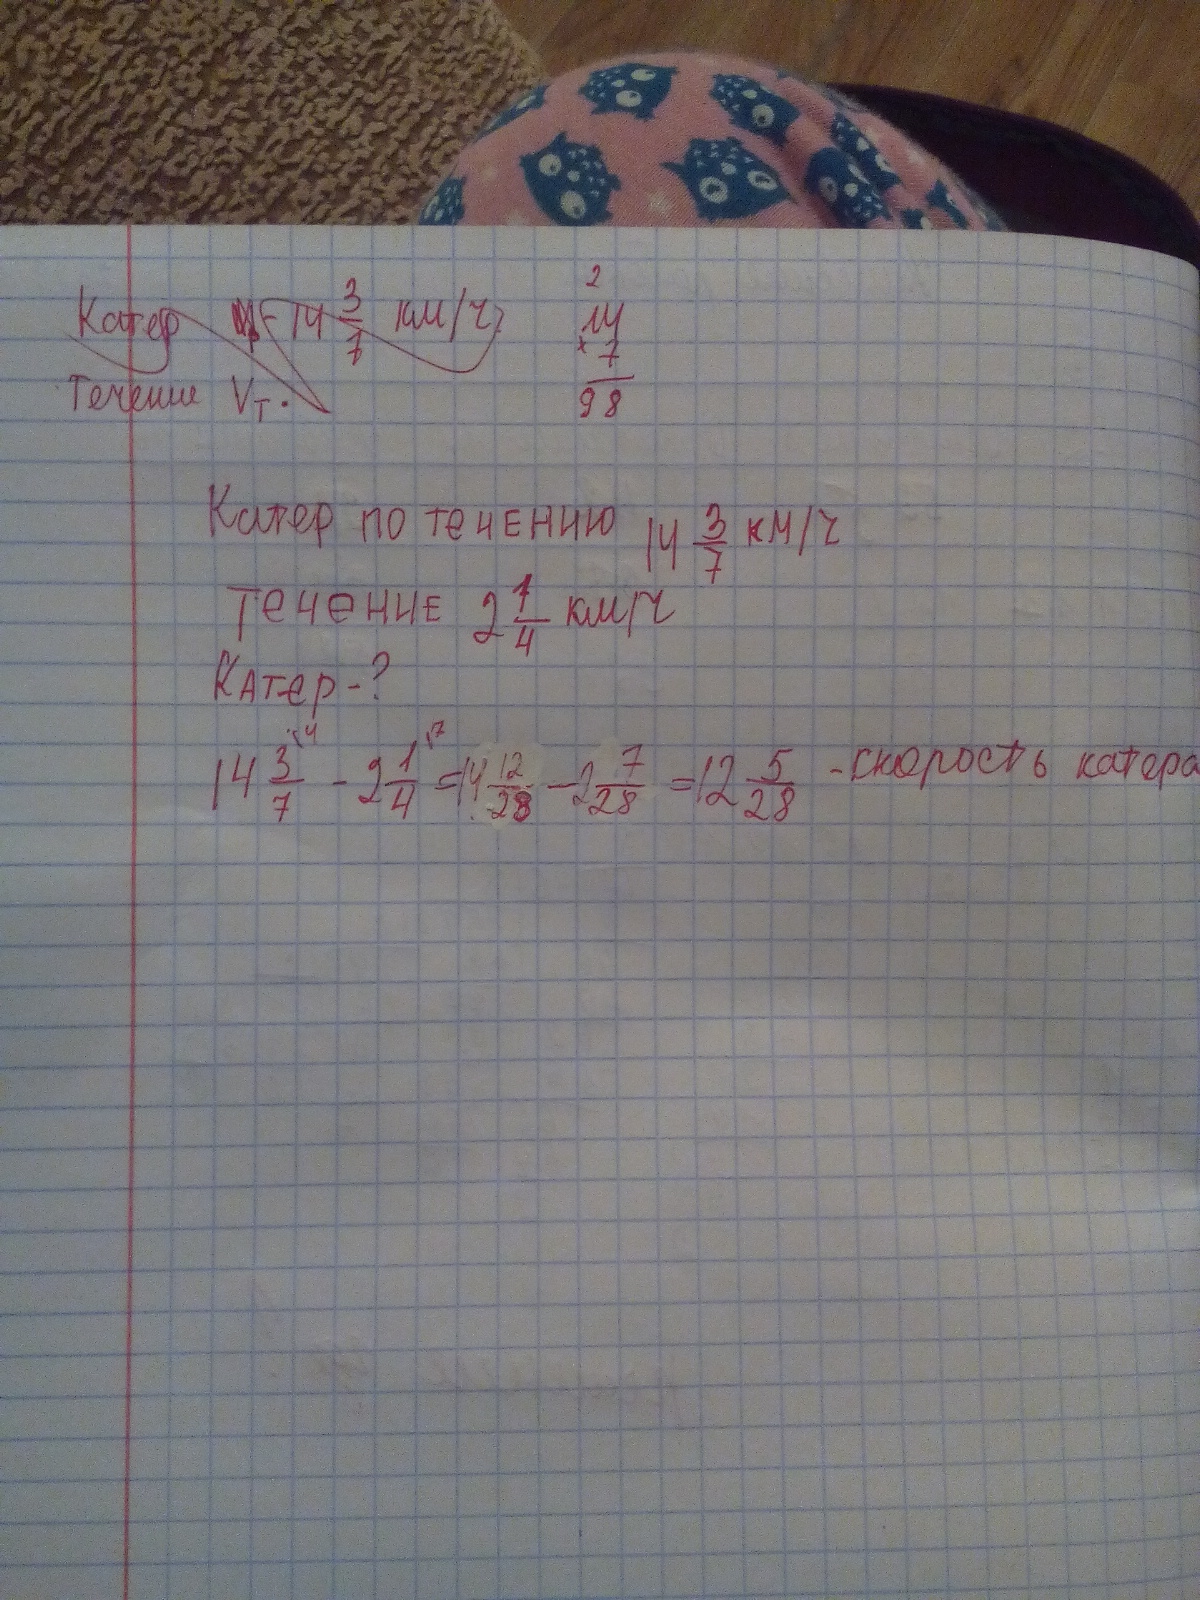 Катер 14 3/7 км/ч
Течение Vт.
2
14
× 7
98
Катер по течению 14 3/7 км/ч
Течение 2 1/4 км/ч
Катер - ?
14 3/7 \4 - 2 1/4 \7 = 14 12/28 - 2 7/28 = 12 5/28 - скорость катера